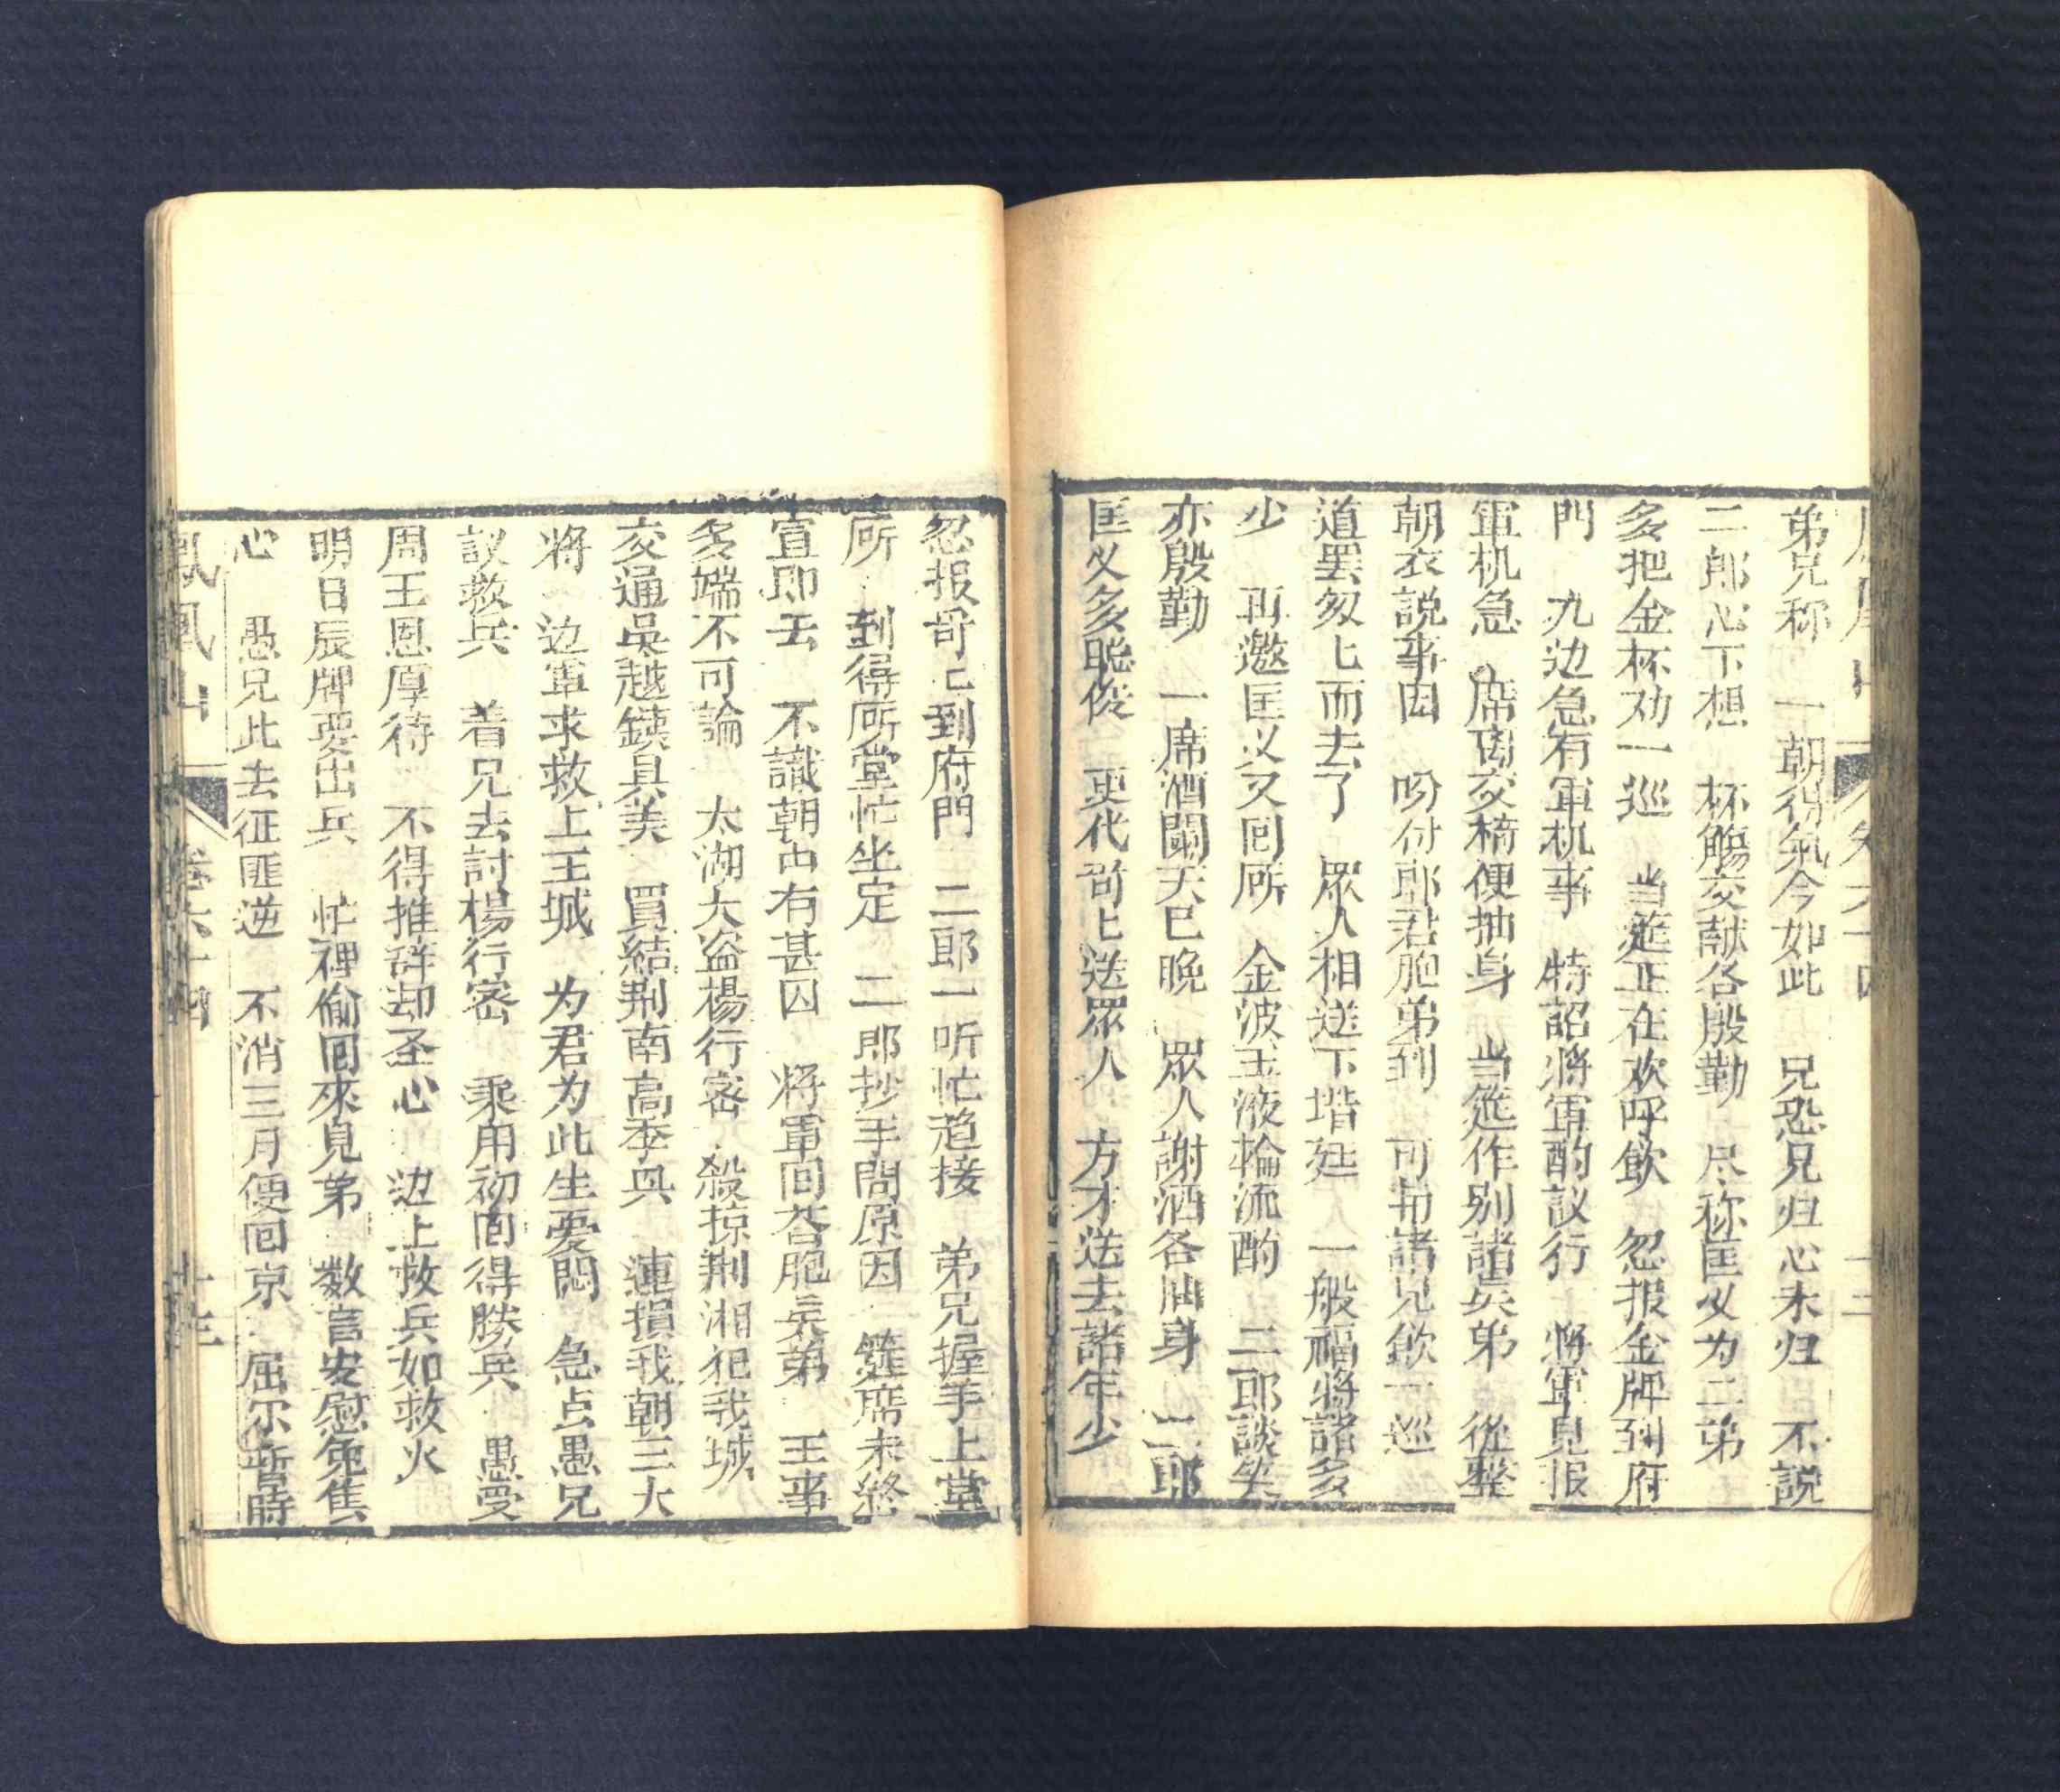 弟兄称　一朝得氣今如此　兄恐兄归心未归　不説
二郎心下想　杯觴交献各殷勤　尽称匡义为二弟
多把金杯劝一巡　当筵正在欢呼飲　忽报金牌到府
門　九边急有軍机事　特詔將軍酌议行　將軍見报
軍机急　席离交椅便抽身　当筵作别諸吳弟　後整
朝衣説事因　吩付郎君胞弟到　可与諸兄飲一巡
道罢匆匕而去了　眾人相送下堦廷　一般福將諸多
少　再邀匡义又回所　金波玉液輪流酌　二郎談笑
亦殷勤　一席酒闌天已晚　眾人謝酒各抽身　二郎
匡义多聪俊　更代哥匕送眾人　方才送去諸年少
忽报哥匕到府門　二郎一听忙趋接　弟兄握手上堂
所　到得所堂忙坐定　二郎抄手問原因　筵席未終
宣即去　不識朝中有甚因　將軍回答胞吳弟　王事
多端不可論　太湖大盗楊行密　殺掠荆湘犯我城
交通吳越錢具美　買結荆南高季兴　連損我朝三大
将　边軍求救上王城　为君为此生憂悶　急点愚兄
议救兵　着兄去討楊行密　乘用初回得勝兵　愚受
周王恩厚待　不得推辞却圣心　边上救兵如救火
明日辰牌要出兵　忙裡偷回來見弟　数言安慰免焦
心　愚兄此去征匪逆　不消三月便回京　屈尔暫時
鳳凰山　卷六十四　十三